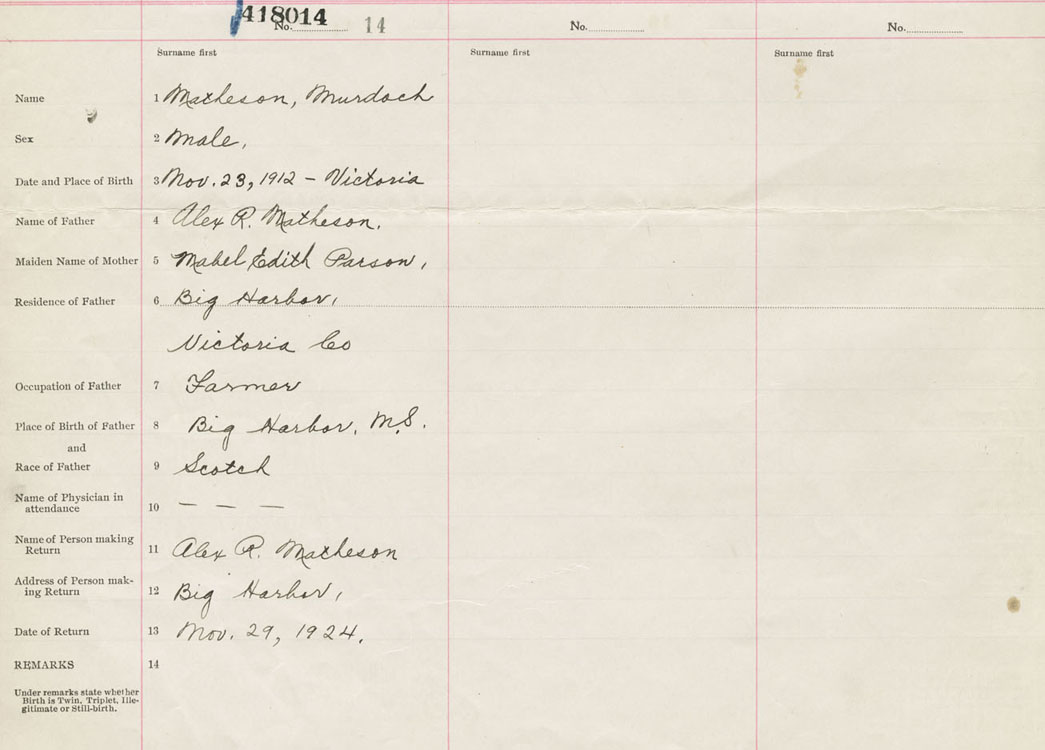 418014
No. 14 No. No.
Surname first Surname first Surname first
Name 1 Matheson, Murdoch
Sex 2 Male,
Date and Place of Birth 3 Nov. 23, 1912 - Victoria
Name of Father 4 Alex R. Matheson,
Maiden Name of Mother 5 Mabel Edith Parson,
Residence of Father 6 Big Harbor,
Victoria Co
Occupation of Father 7 Farmer
Place of Birth of Father 8 Big Harbor, N.S.
and
Race of Father 9 Scotch
Name of Physician in
attendance 10 — — —
Name of Person making
Return 11 Alex R. Matheson
Address of Person mak-
ing Return 12 Big Harbor,
Date of Return 13 Nov. 29, 1924.
REMARKS 14
Under remarks state whether
Birth is Twin, Triplet, Ille-
gitimate or Still-birth.